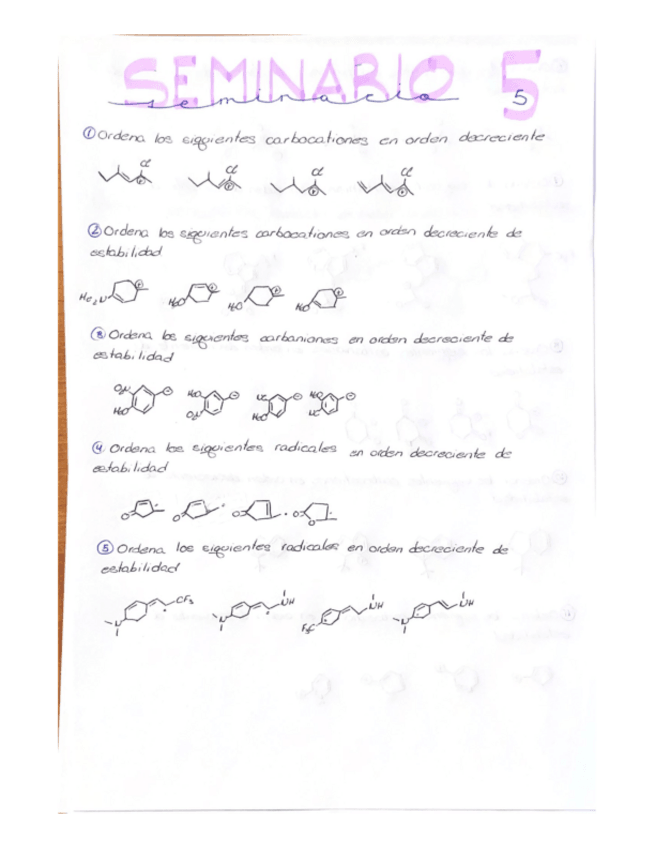 SEMINARIO 5
seminario 5
① Ordena los siguientes carbocationes en orden decreciente
Cl Cl Cl Cl
② Ordena los siguientes carbocationes en orden decreciente de
estabilidad
Me₂N HO HO
③ Ordena los siguientes carbaniones en orden decreciente de
estabilidad
O₂N
④ Ordena los siguientes radicales en orden decreciente de
estabilidad
O O O O O
⑤ Ordena los siguientes radicales en orden decreciente de
estabilidad
CF₃ NH NH NH
N N F₃C N